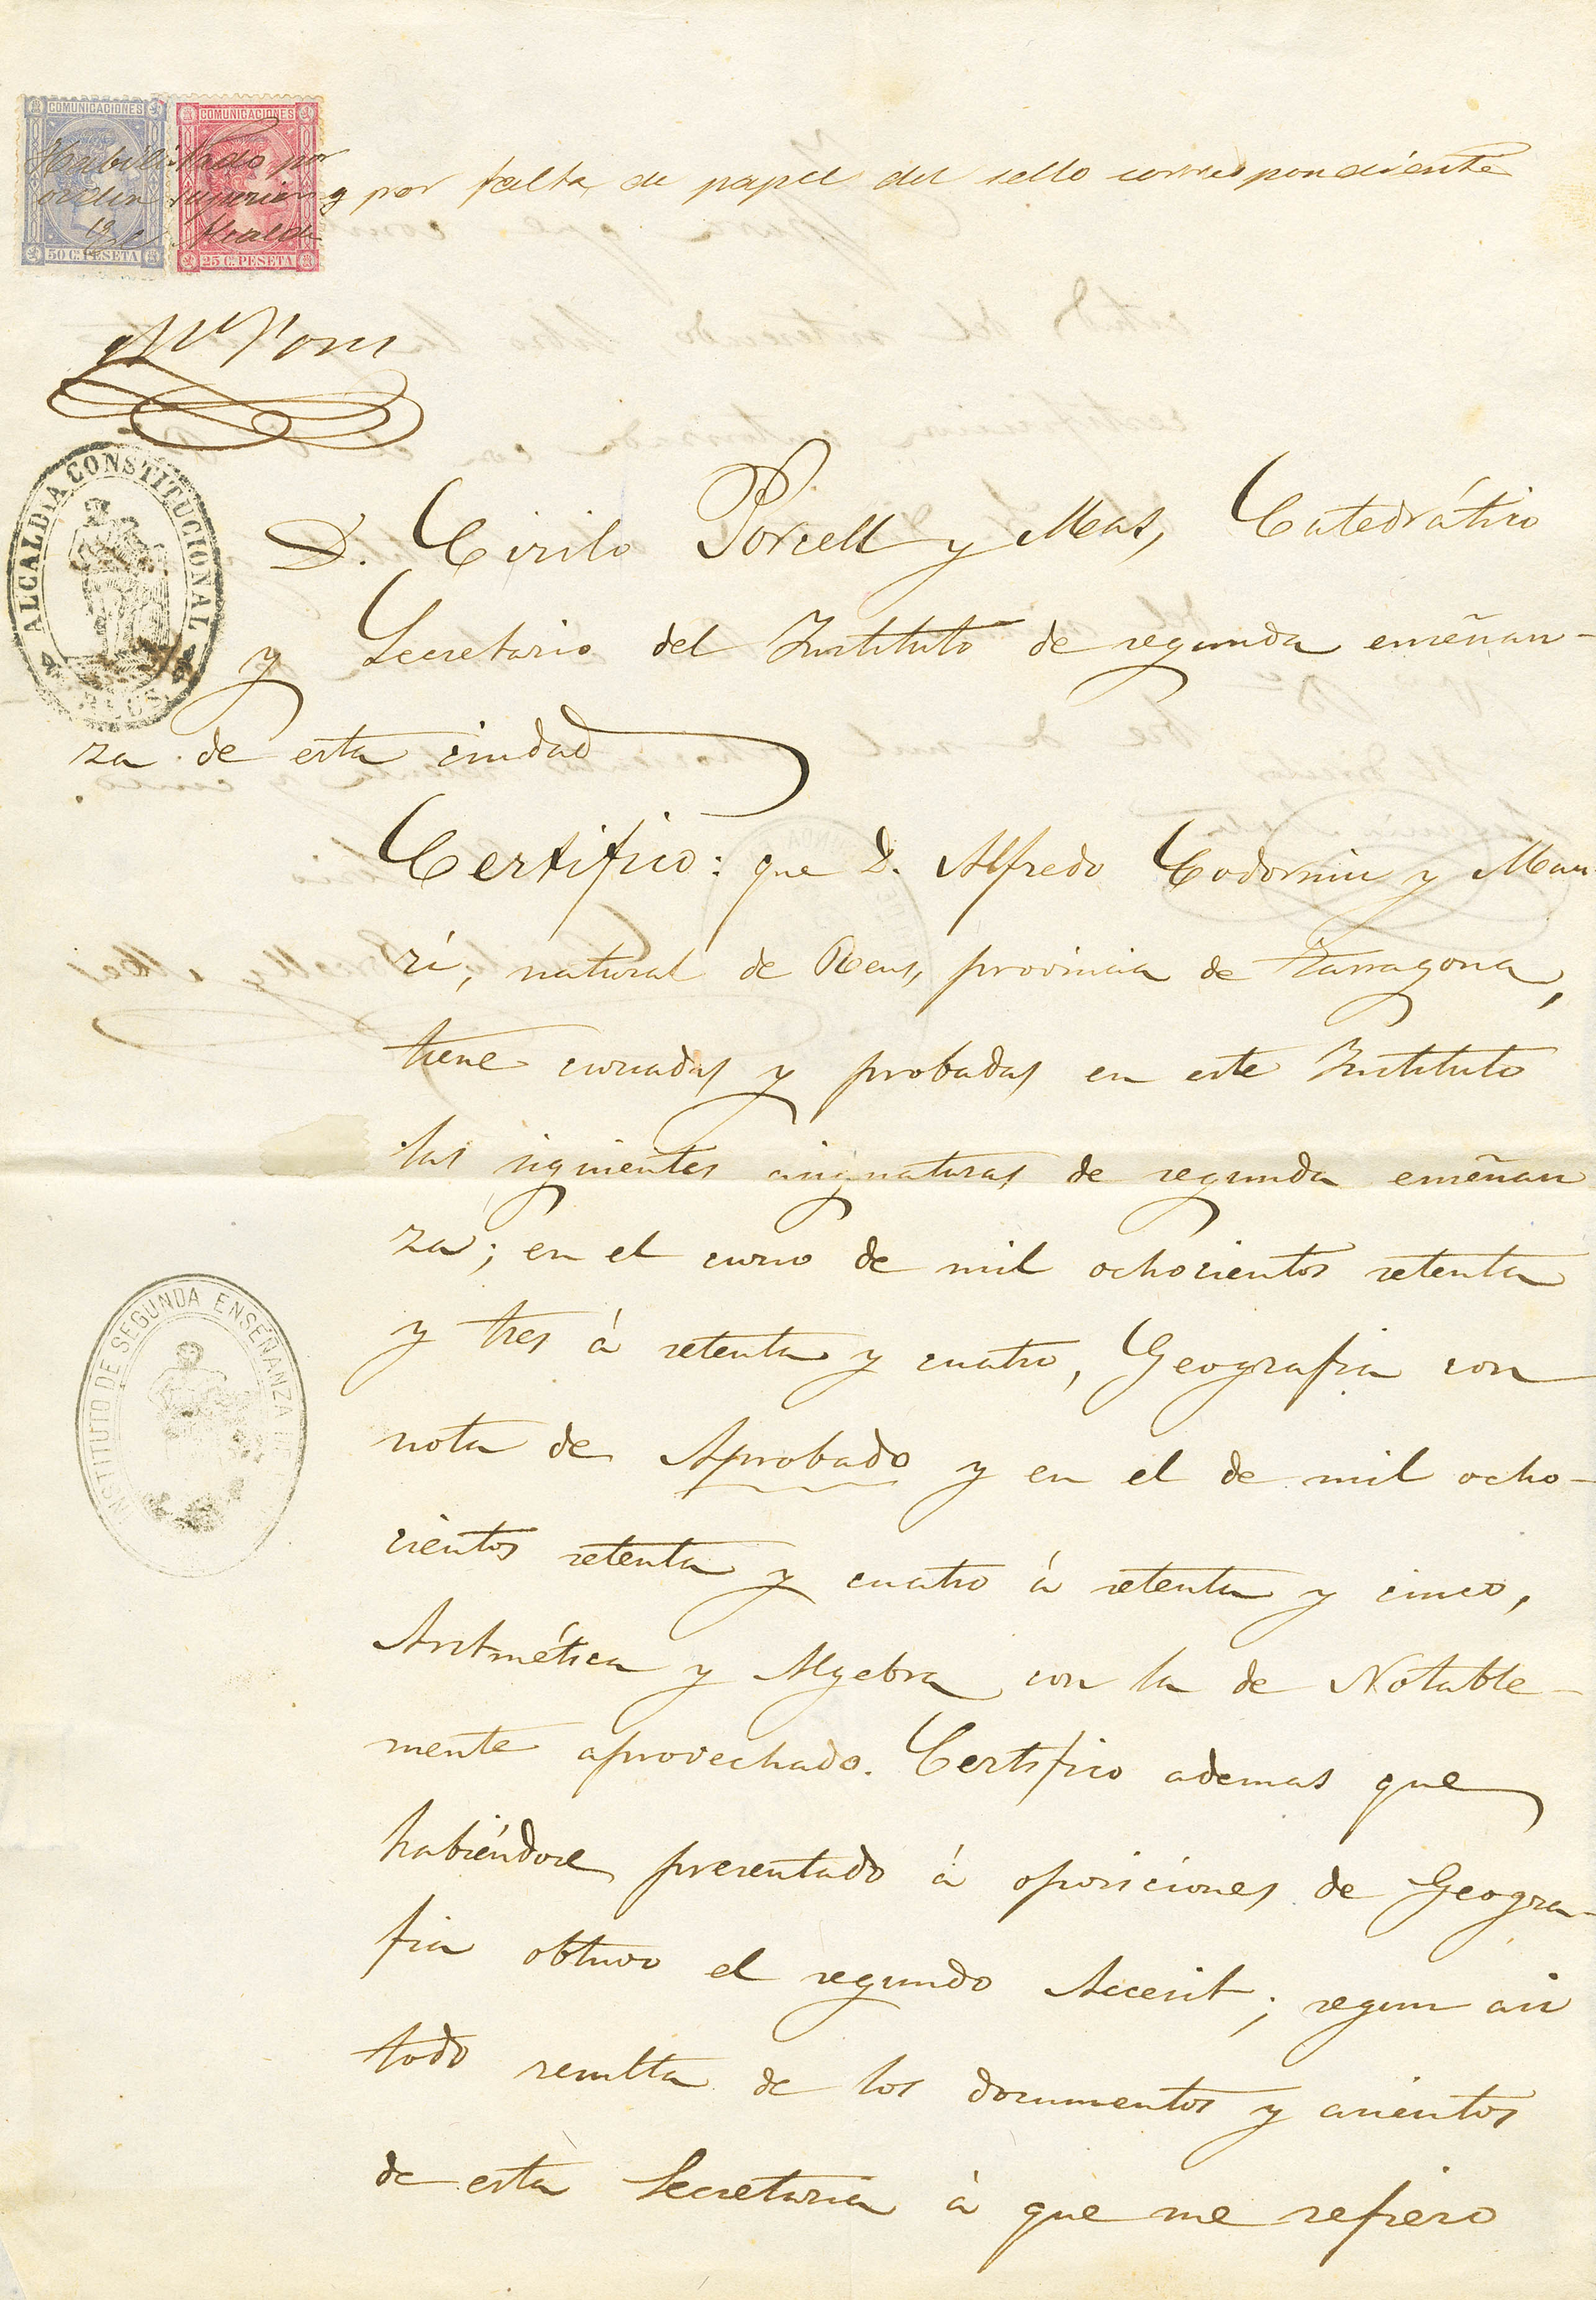 COMUNICACIONES COMUNICACIONES
Habilitado por
orden superior y por falta de papel del sello correspondiente
Alcalde
50 C. PESETA 25 C. PESETA
Pons
ALCALDIA CONSTITUCIONAL
REUS
D. Cirilo Porcell y Mas, Catedrático
y Secretario del Instituto de segunda enseñan-
za de esta ciudad
Certifico: que D. Alfredo Codorniu y Mau-
ri, natural de Reus, provincia de Tarragona,
tiene cursadas y probadas en este Instituto
las siguientes asignaturas de segunda enseñan
za; en el curso de mil ochocientos setenta
y tres á setenta y cuatro, Geografia con
nota de Aprobado y en el de mil ocho-
cientos setenta y cuatro á setenta y cinco,
Aritmética y Algebra con la de Notable-
mente aprovechado. Certifico ademas que
habiéndose presentado á oposiciones de Geogra-
fia obtuvo el segundo Accesit; segun asi
todo resulta de los documentos y asientos
de esta Secretaria á que me refiero
INSTITUTO DE SEGUNDA ENSEÑANZA DE